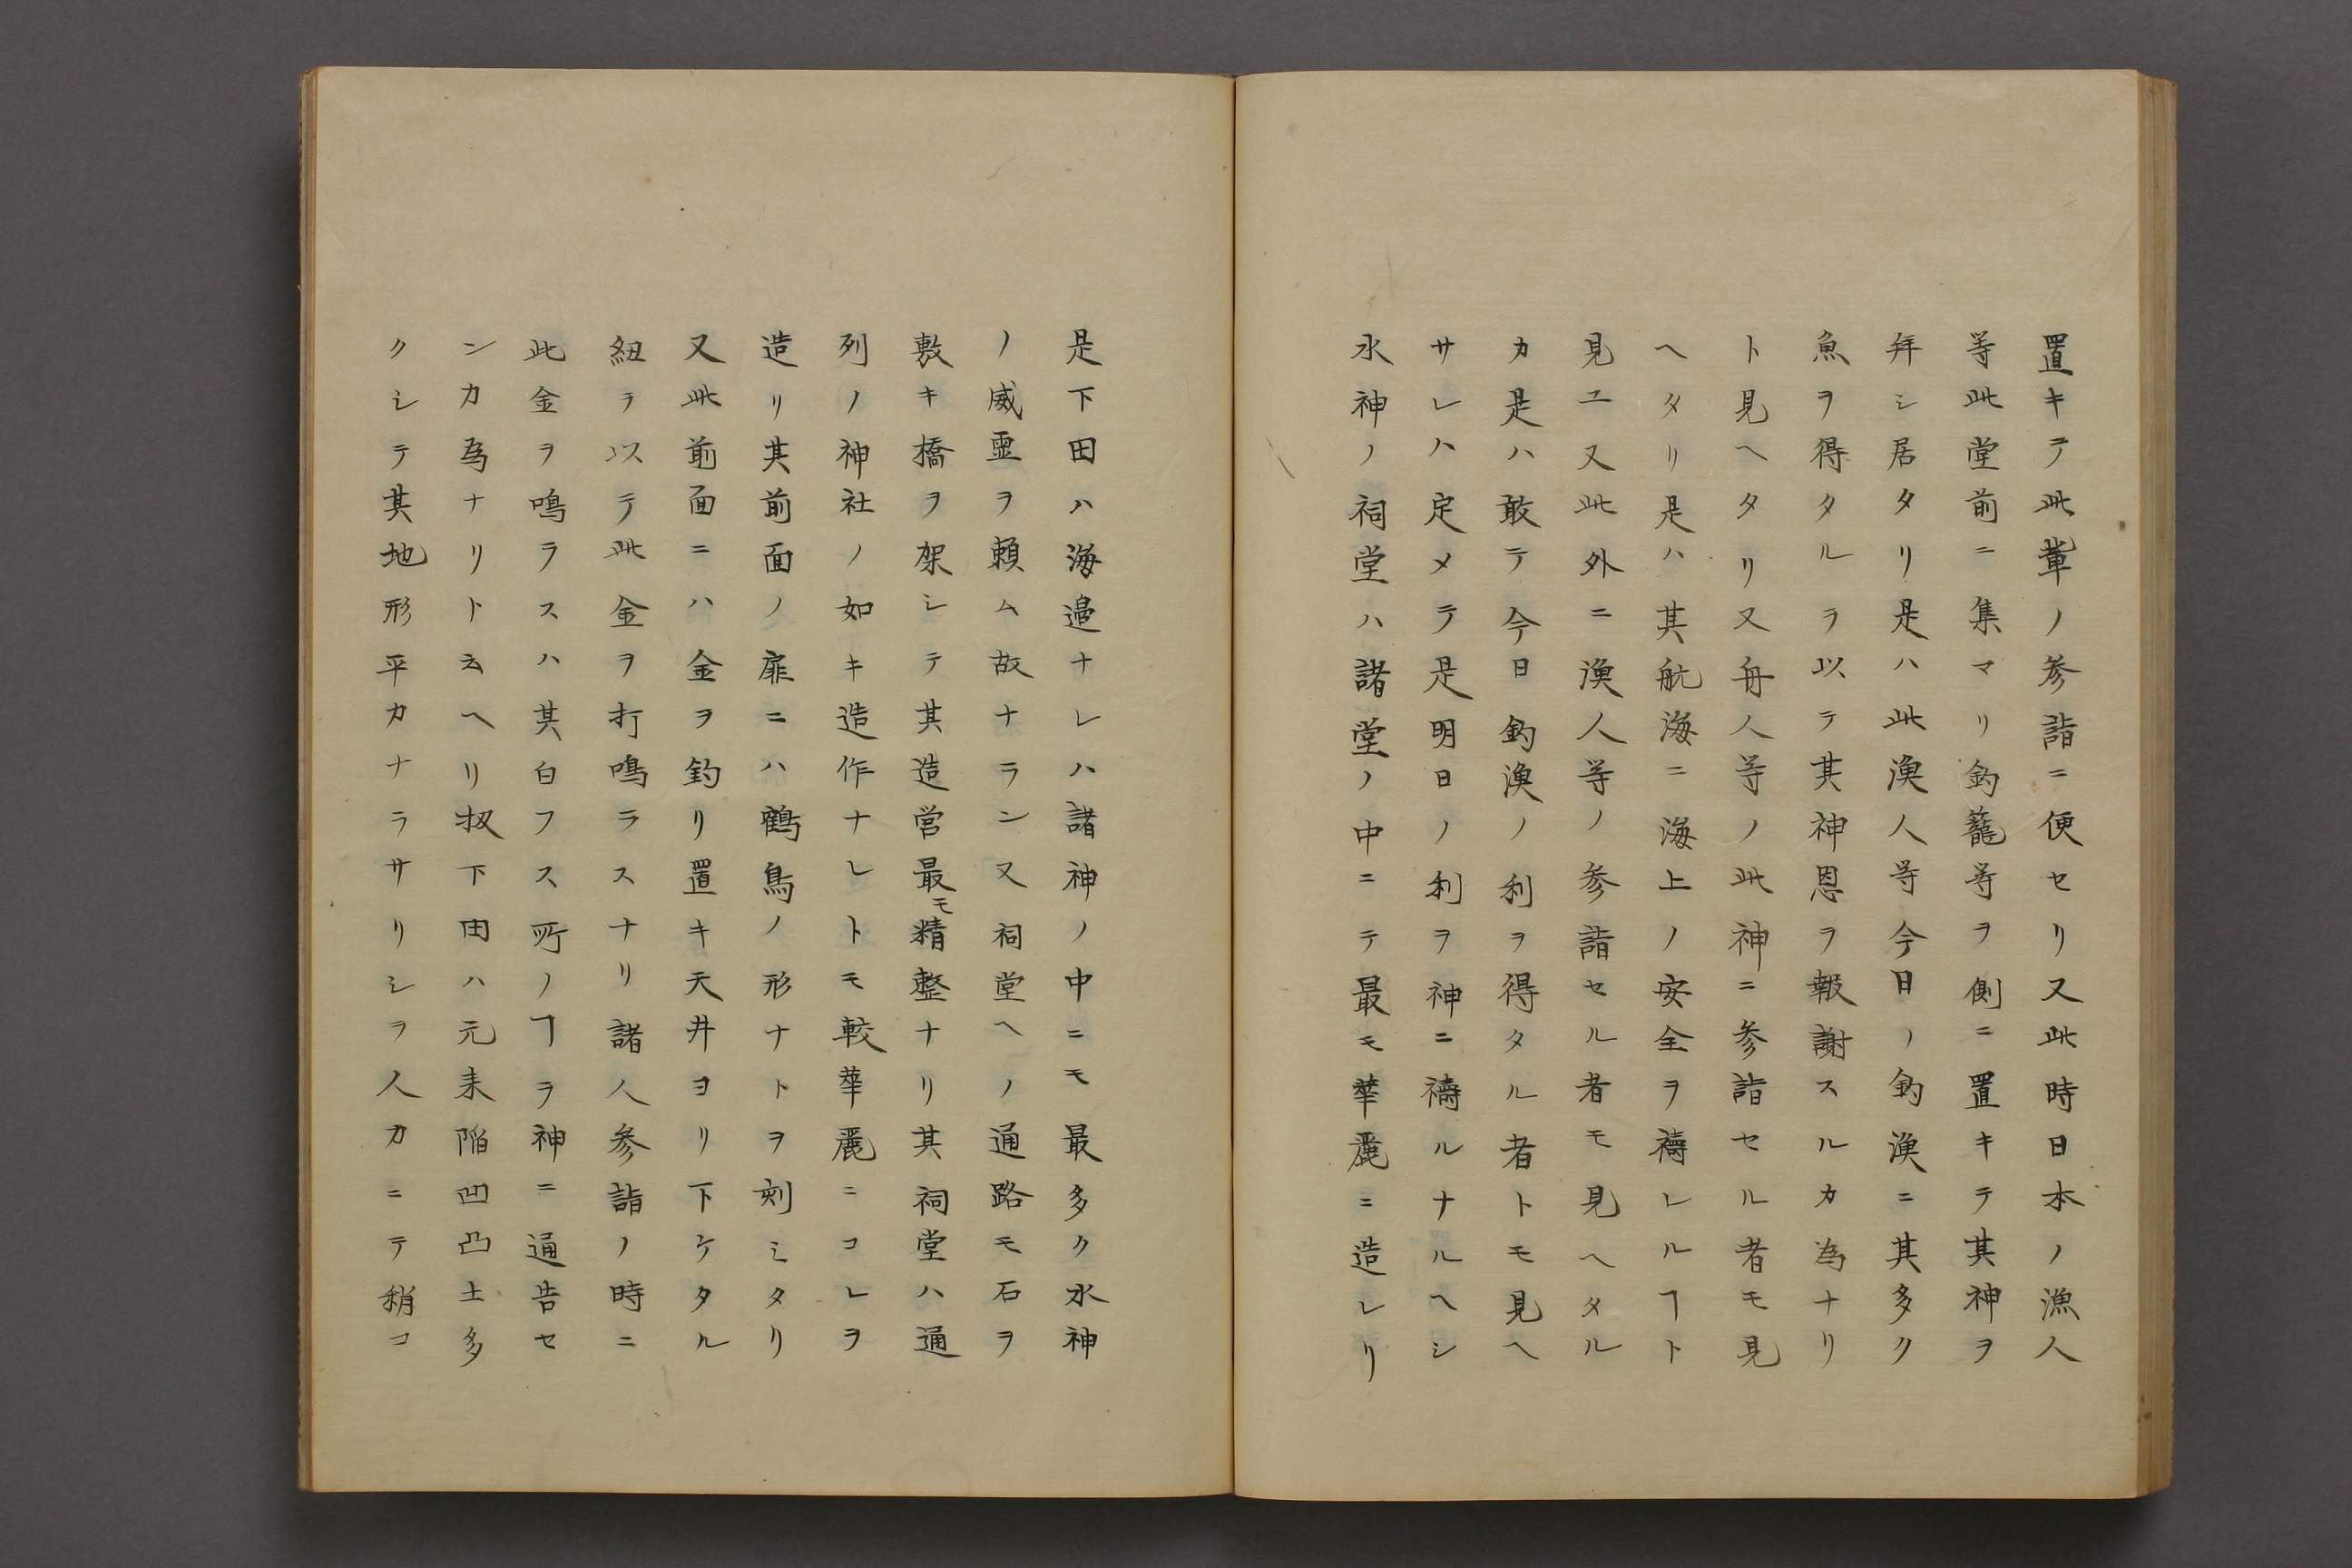 置キテ此輩ノ参詣ニ便セリ又此時日本ノ漁人
等此堂前ニ集マリ釣籠等ヲ側ニ置キテ其神ヲ
拜シ居タリ是ハ此漁人等今日ノ釣漁ニ其多ク
魚ヲ得タルヲ以テ其神恩ヲ報謝スルカ為ナリ
ト見ヘタリ又舟人等ノ此神ニ参詣セル者モ見
ヘタリ是ハ其航海ニ海上ノ安全ヲ禱レルヿト
見ユ又此外ニ漁人等ノ参詣セル者モ見ヘタル
カ是ハ敢テ今日釣漁ノ利ヲ得タル者トモ見ヘ
サレハ定メテ是明日ノ利ヲ神ニ禱ルナルヘシ
水神ノ祠堂ハ諸堂ノ中ニテ最モ華麗ニ造レリ
是下田ハ海邉ナレハ諸神ノ中ニモ最多ク水神
ノ威霊ヲ頼ム故ナラン又祠堂ヘノ通路モ石ヲ
敷キ橋ヲ架シテ其造営最モ精整ナリ其祠堂ハ通
列ノ神社ノ如キ造作ナレトモ較華麗ニコレヲ
造リ其前面ノ扉ニハ鶴鳥ノ形ナトヲ刻ミタリ
又此前面ニハ金ヲ釣リ置キ天井ヨリ下ケタル
紐ヲ以テ此金ヲ打鳴ラスナリ諸人参詣ノ時ニ
此金ヲ鳴ラスハ其白フス所ノヿヲ神ニ通告セ
ンカ為ナリト云ヘリ扨下田ハ元来陥凹凸土多
クシテ其地形平カナラサリシヲ人力ニテ稍コ